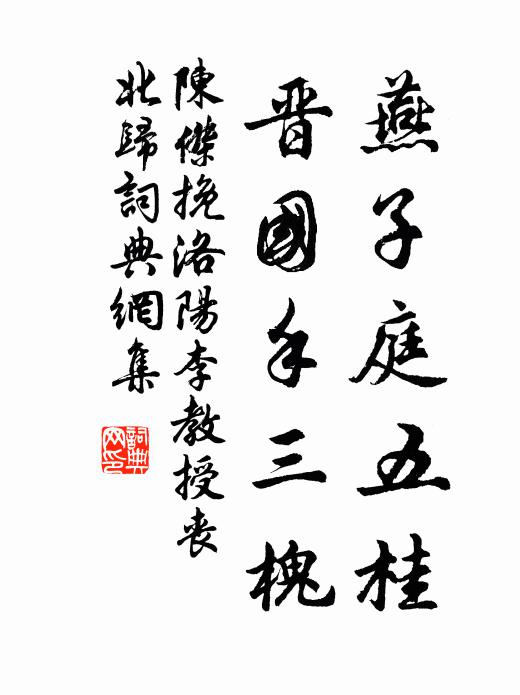 燕子庭五桂
晋國手三槐
陳傑挽洛陽李教授喪
北歸詞典網集
詞典
网印